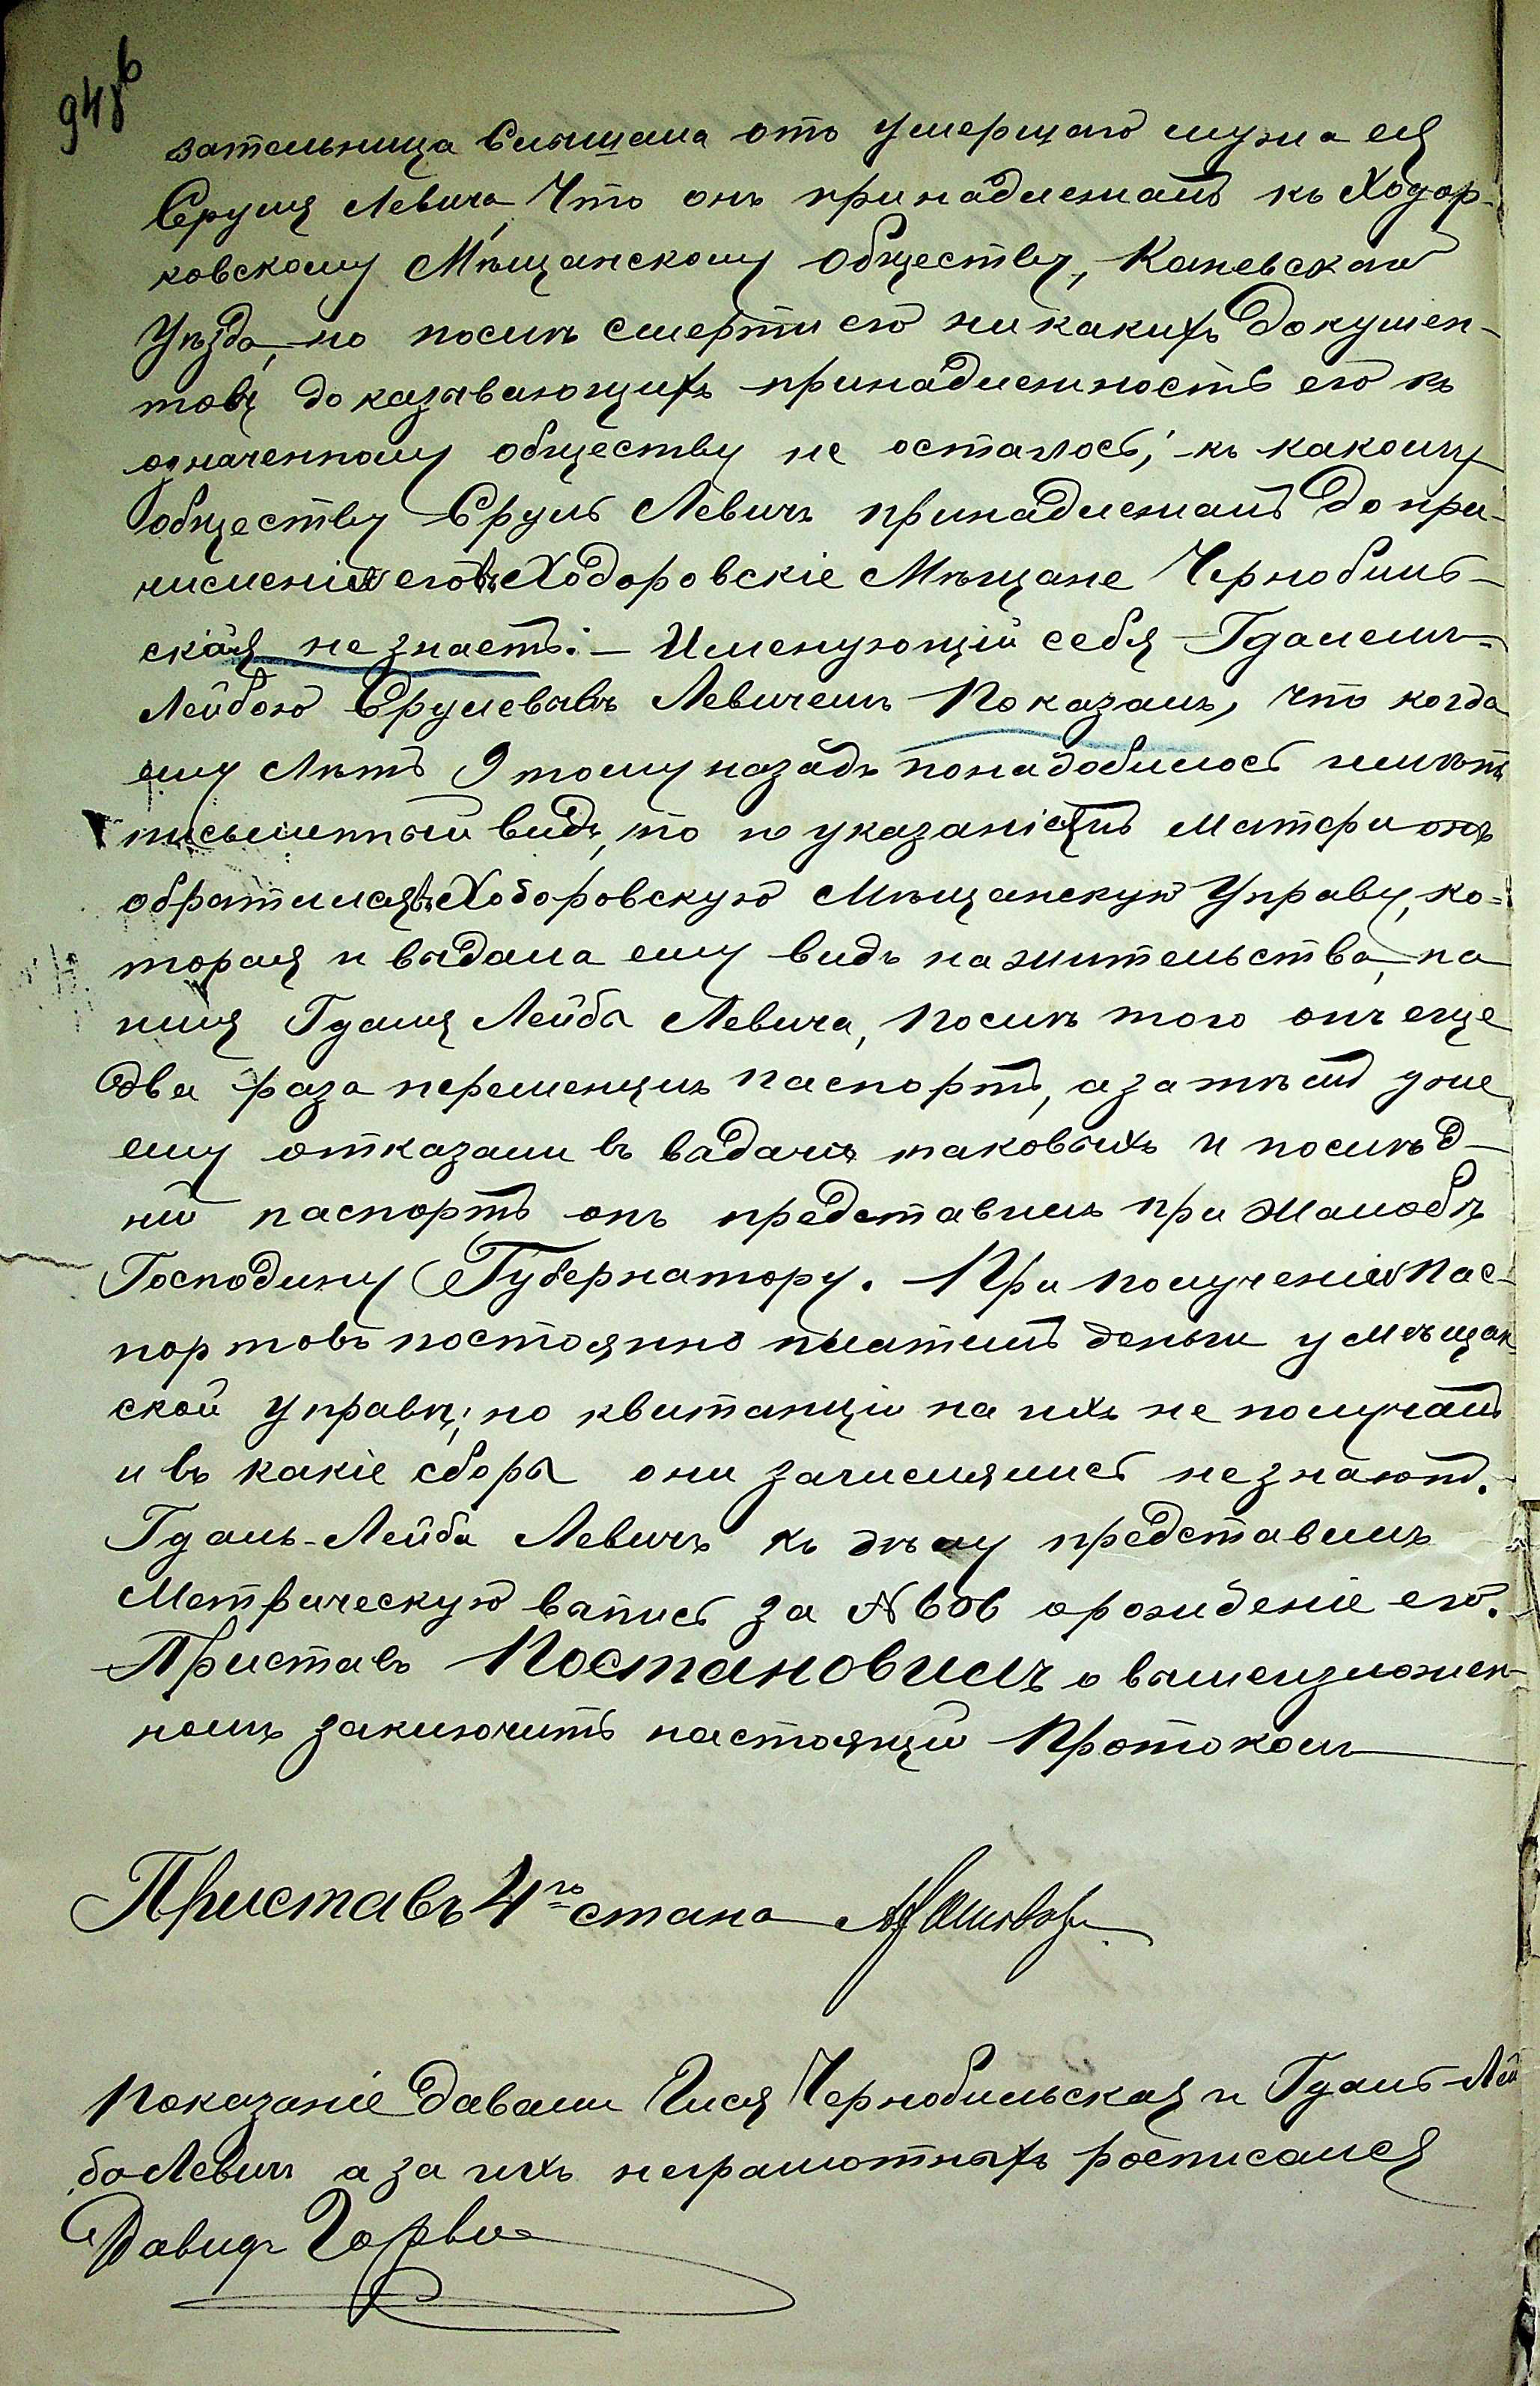 948 в
зательница Слышала отъ умершаго мужа ея
Сруля Левича Что онъ принадлежалъ къ Ходор-
ковскому Мѣщанскому Обществу, Каневскаго
Уѣзда, но послѣ смерти его никакихъ докумен-
товъ доказывающихъ принадлежность его къ
означенному обществу не осталось; къ какому
обществу Сруль Левичъ принадлежалъ до при-
численія его въ Ходоровскіе Мѣщане Чернобыль-
ская не знаетъ: – Именующій себя Гдалемъ-
Лейбою Срулевымъ Левичемъ Показалъ, что когда
ему Лѣтъ 9 тому назадъ понадобилось имѣть
письменный видъ, то по указанію Матери онъ
обратился въ Ходоровскую Мѣщанскую Управу, ко-
торая и выдала ему видъ на жительства, на
имя Гдаля Лейба Левича, послѣ того онъ еще
два раза перемѣнилъ паспортъ, а затѣмъ уже
ему отказали въ выдачѣ таковыхъ и послѣд-
ній паспортъ онъ представилъ при жалобѣ
Господину Губернатору. При полученіи пас-
портовъ постоянно платилъ деньги у мѣщан-
ской управѣ; но квитанціи на ихъ не получалъ
и въ какіе сборы они зачислялись не знаютъ.
Гдаль-Лейба Левичъ къ дѣлу представилъ
Метрическую выпись за № 606 о рожденіе его.
Приставъ Постановилъ о вышеизложен-
номъ заключить настоящій Протоколъ
Приставъ 4го стана
Показаніе давали Чернобильская и Гдаль-Лей
ба Левичъ а за ихъ неграмотныхъ росписался
Давидъ